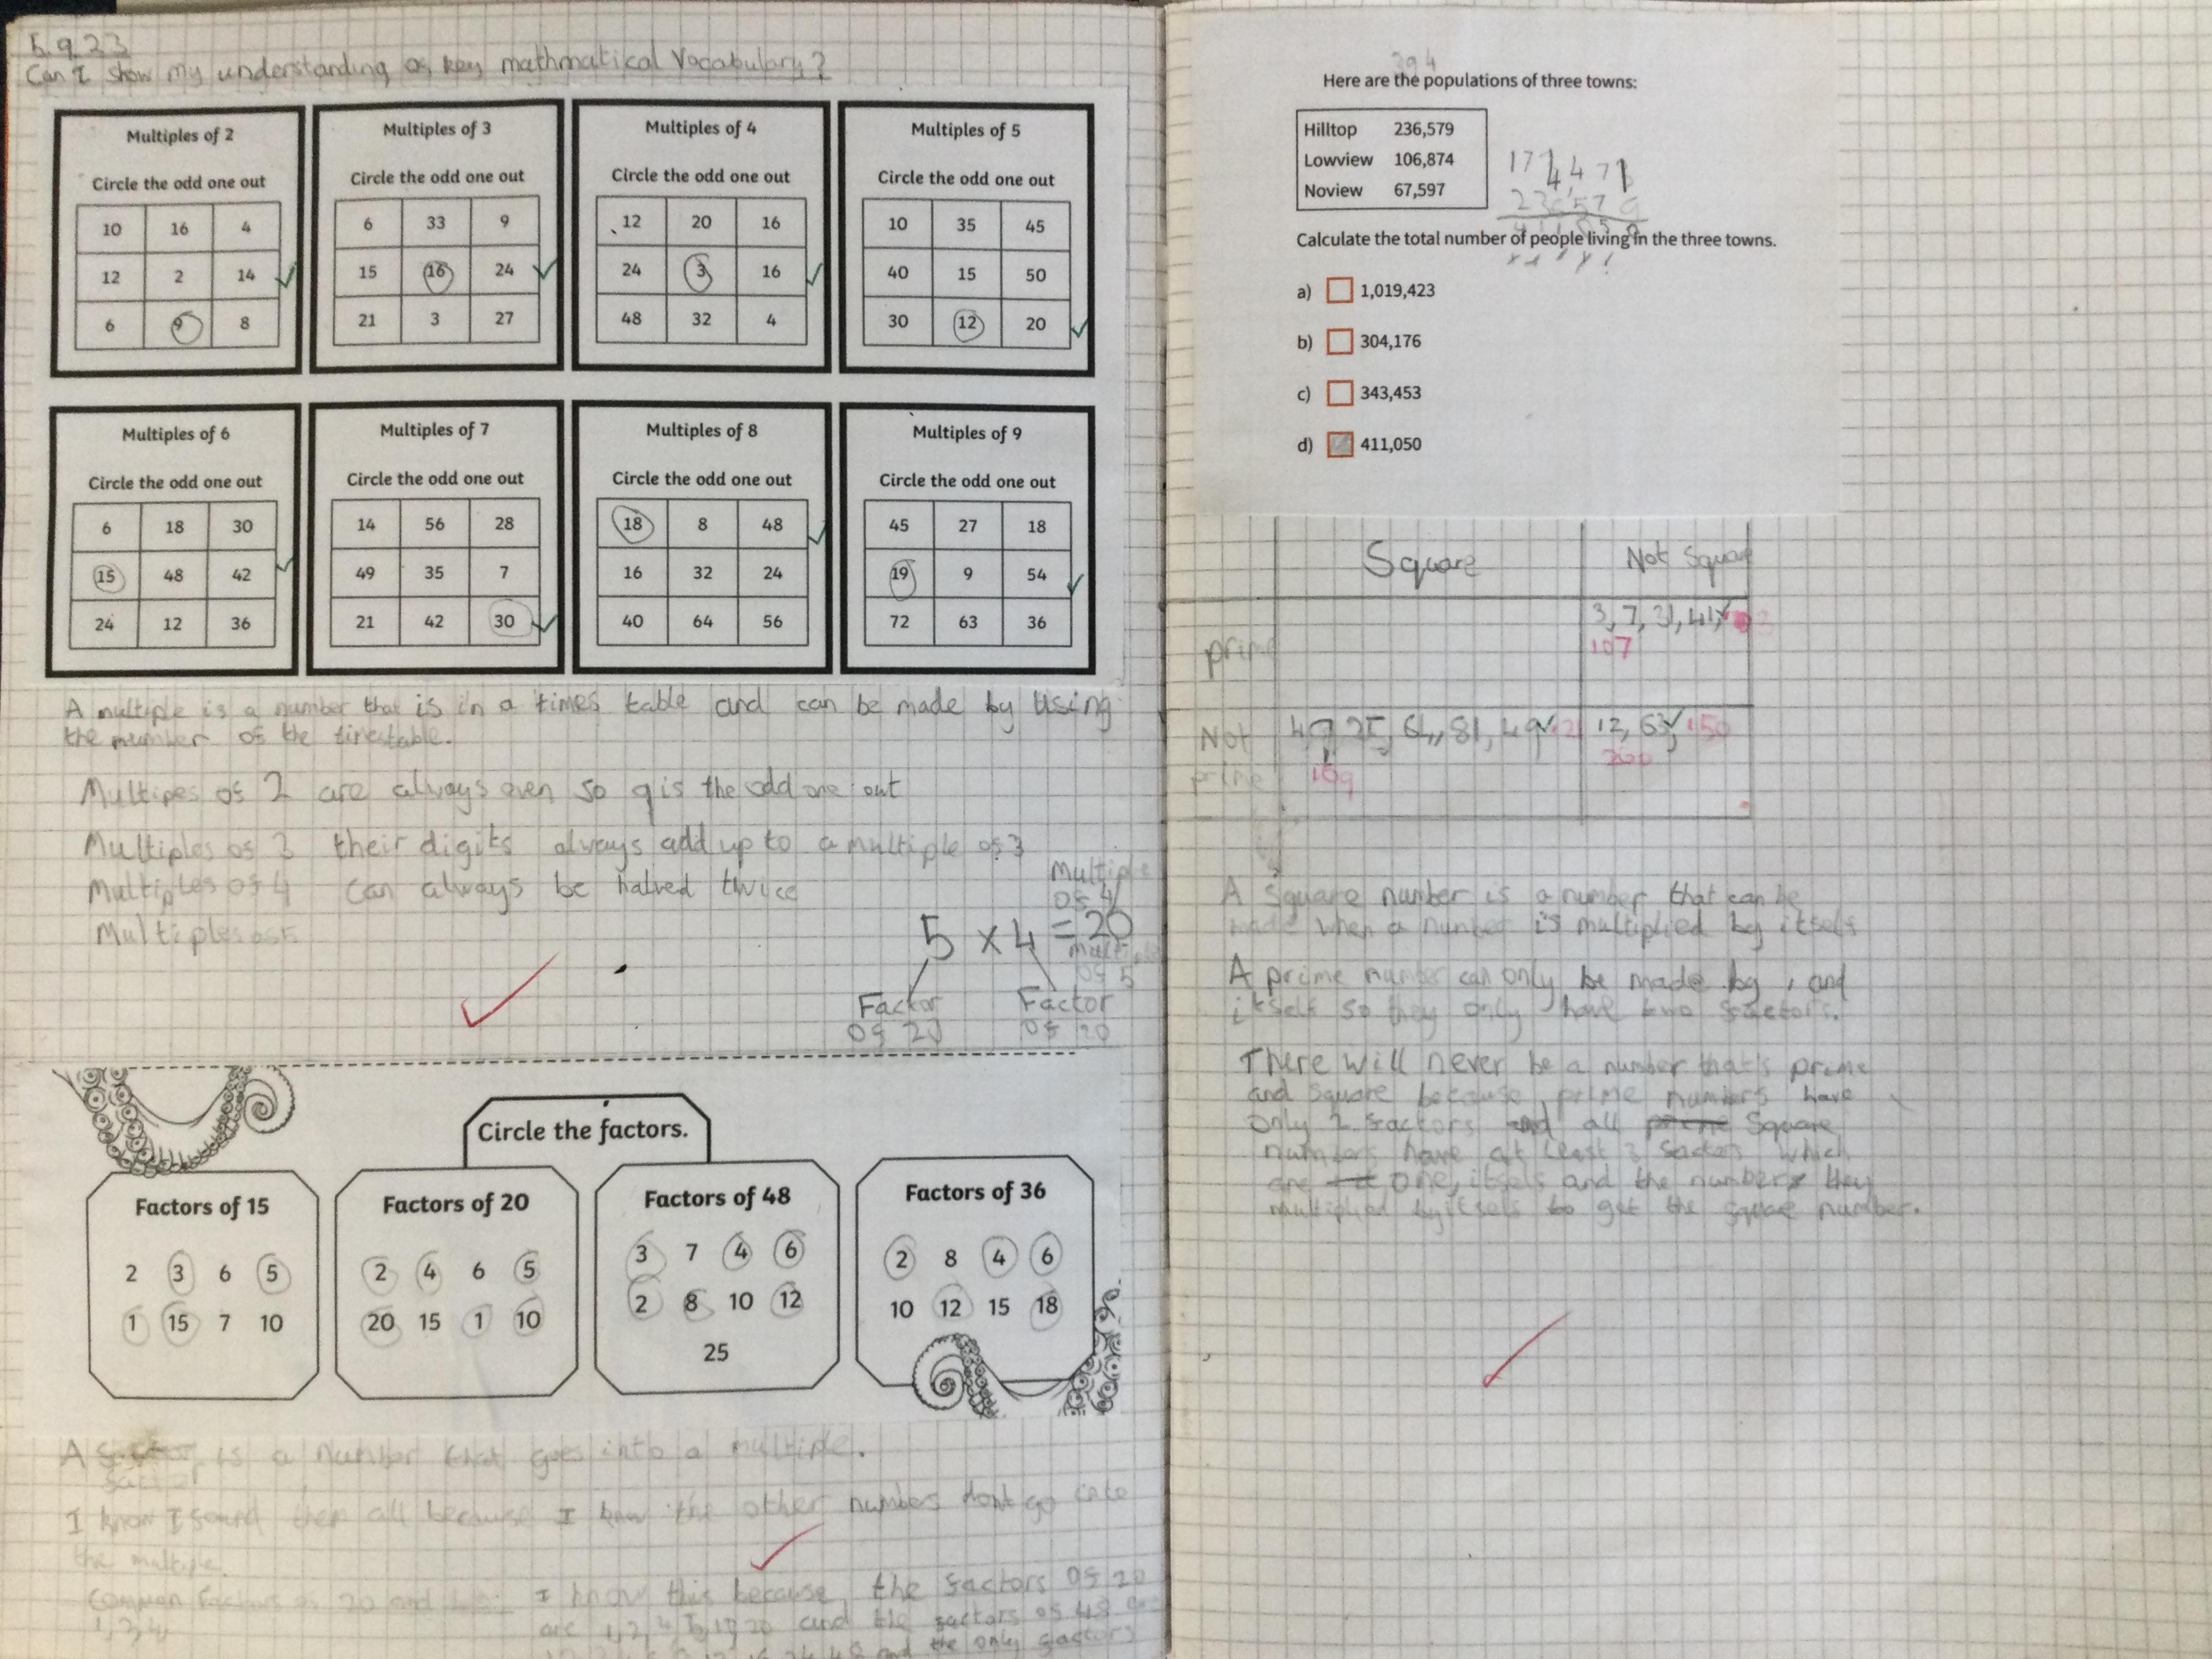 5.9.23
Can I show my understanding of key mathmatical Vocabulary?
Multiples of 2
Circle the odd one out
10 16 4
12 2 14
6 9 8
Multiples of 3
Circle the odd one out
6 33 9
15 16 24
21 3 27
Multiples of 4
Circle the odd one out
12 20 16
24 3 16
48 32 4
Multiples of 5
Circle the odd one out
10 35 45
40 15 50
30 12 20
Multiples of 6
Circle the odd one out
6 18 30
15 48 42
24 12 36
Multiples of 7
Circle the odd one out
14 56 28
49 35 7
21 42 30
Multiples of 8
Circle the odd one out
18 8 48
16 32 24
40 64 56
Multiples of 9
Circle the odd one out
45 27 18
19 9 54
72 63 36
A multiple is a number that is in a times table and can be made by using
the number of the timestable.
Multipes of 2 are always even so 9 is the odd one out
Multiples of 3 their digits always add up to a multiple of 3
Multiples of 4 can always be halved twice
Multiples of 5
Multiple
of 4
5 × 4 = 20
multiple
of 5
Factor Factor
of 20 of 20
Circle the factors.
Factors of 15
2 3 6 5
1 15 7 10
Factors of 20
2 4 6 5
20 15 1 10
Factors of 48
3 7 4 6
2 8 10 12
25
Factors of 36
2 8 4 6
10 12 15 18
A factor is a number that goes into a multiple.
I know I found them all because I know the other numbers dont go into
the multiple.
Common factors of 20 and
1, 2, 4,
I know this because the factors of 20
are 1, 2, 4, 5, 10, 20 and the factors of 48 are
and the only factors
394
Here are the populations of three towns:
Hilltop 236,579
Lowview 106,874
Noview 67,597
236579
Calculate the total number of people living in the three towns.
a) 1,019,423
b) 304,176
c) 343,453
d) 411,050
Square Not Square
prime 3, 7, 31, 41,
107
Not prime
4, 25, 64, 81, 49
169
12, 63, 150
200
A Square number is a number that can be
made when a number is multiplied by itself
A prime number can only be made by 1 and
itself so they only have two factors.
There will never be a number that's prime
and square because prime numbers have
only 2 factors and all prime Square
numbers have at least 3 factors which
are one, itself and the number they
multiplied by itself to get the square number.